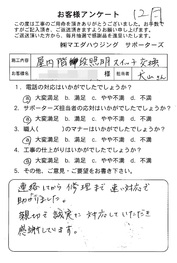 お客様アンケート 12月
この度は工事のご用命を頂きありがとうございました。お手数で
すがご記入頂き、ご返送頂きますようお願い申し上げます。
ご返送いただいた方から、毎月抽選で感謝品を進呈いたします。
㈱マエダハウジング サポーターズ
施工内容 屋内階段照明スイッチ交換
お名前 様 担当者 大山さん
1. 電話の対応はいかがでしたでしょうか?
大変満足 満足 普通 やや不満 不満
2. サポーターズ担当者の対応はいかがでしたでしょうか?
大変満足 満足 普通 やや不満 不満
3. 職人( )のマナーはいかがでしたでしょうか?
大変満足 満足 普通 やや不満 不満
4. 工事の仕上がりはいかがでしたでしょうか?
大変満足 満足 普通 やや不満 不満
5. その他、ご意見・ご要望をお聞かせ下さい。
連絡してから修理まで速い対応で
助かりました。
親切で誠実に対応していただき
感謝しています。